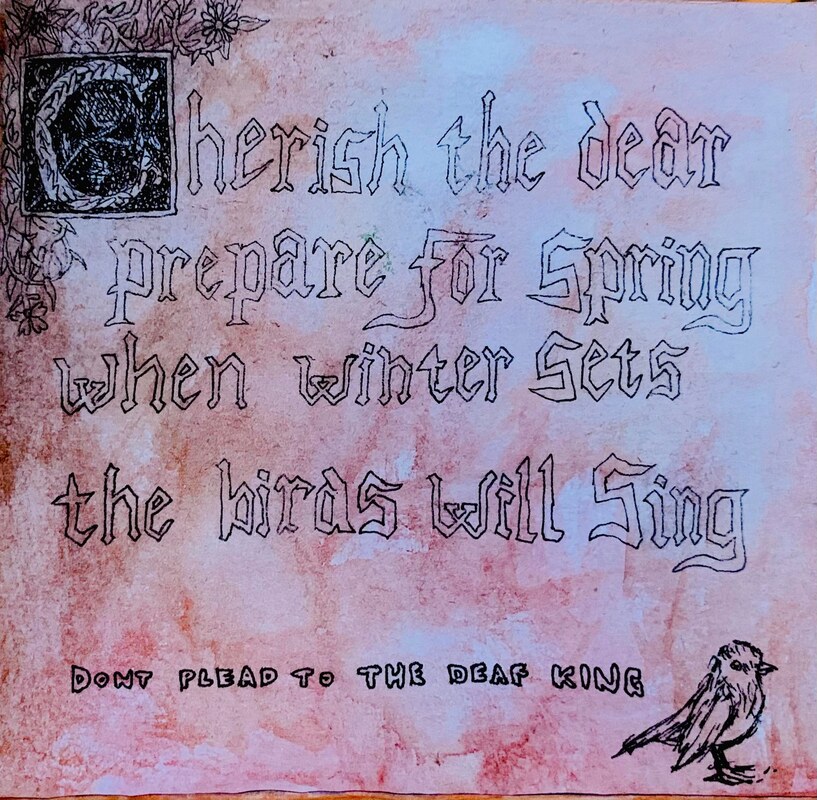 Cherish the dear
prepare for Spring
when winter Sets
the birds will Sing
DONT PLEAD TO THE DEAF KING